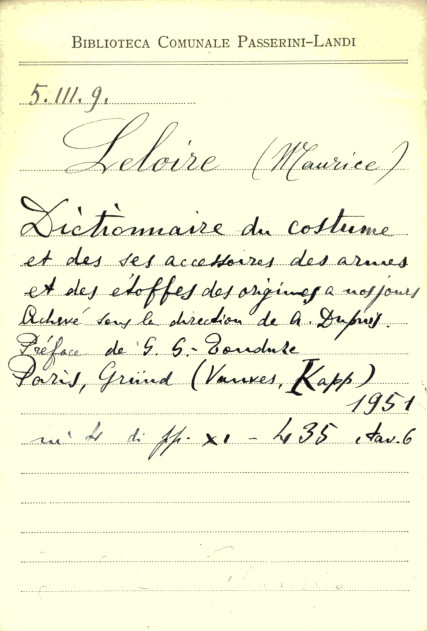 BIBLIOTECA COMUNALE PASSERINI-LANDI
5.III.9.
Leloire (Maurice)
Dictionnaire du costume
et des ses accessoires des armes
et des étoffes des origines a nos jours
Achevé sous la direction de A. Dupuis.
Préface de G. G. Touduze
Paris, Gründ (Vanves, Kapp)
1951
in 4 di pp. XI - 435 tav. 6